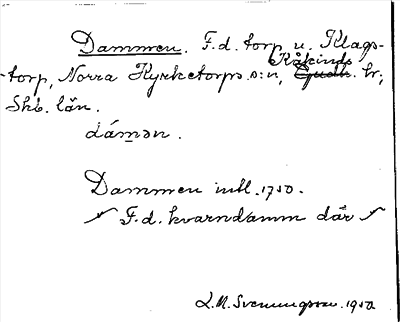 Dammen. F.d. torp u. Klags-
Kåkinds
torp, Norra Kyrketorps s:n, Gudh. hr,
Skb. län.
dám̲ən.
Dammen mtl. 1750.
F.d. kvarndamm där
L.M. Svenungsson 1950